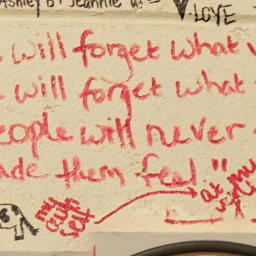 Ashley B + Jeannie
LOVE
will forget what
will forget what
eople will never
ade them feel"
at my